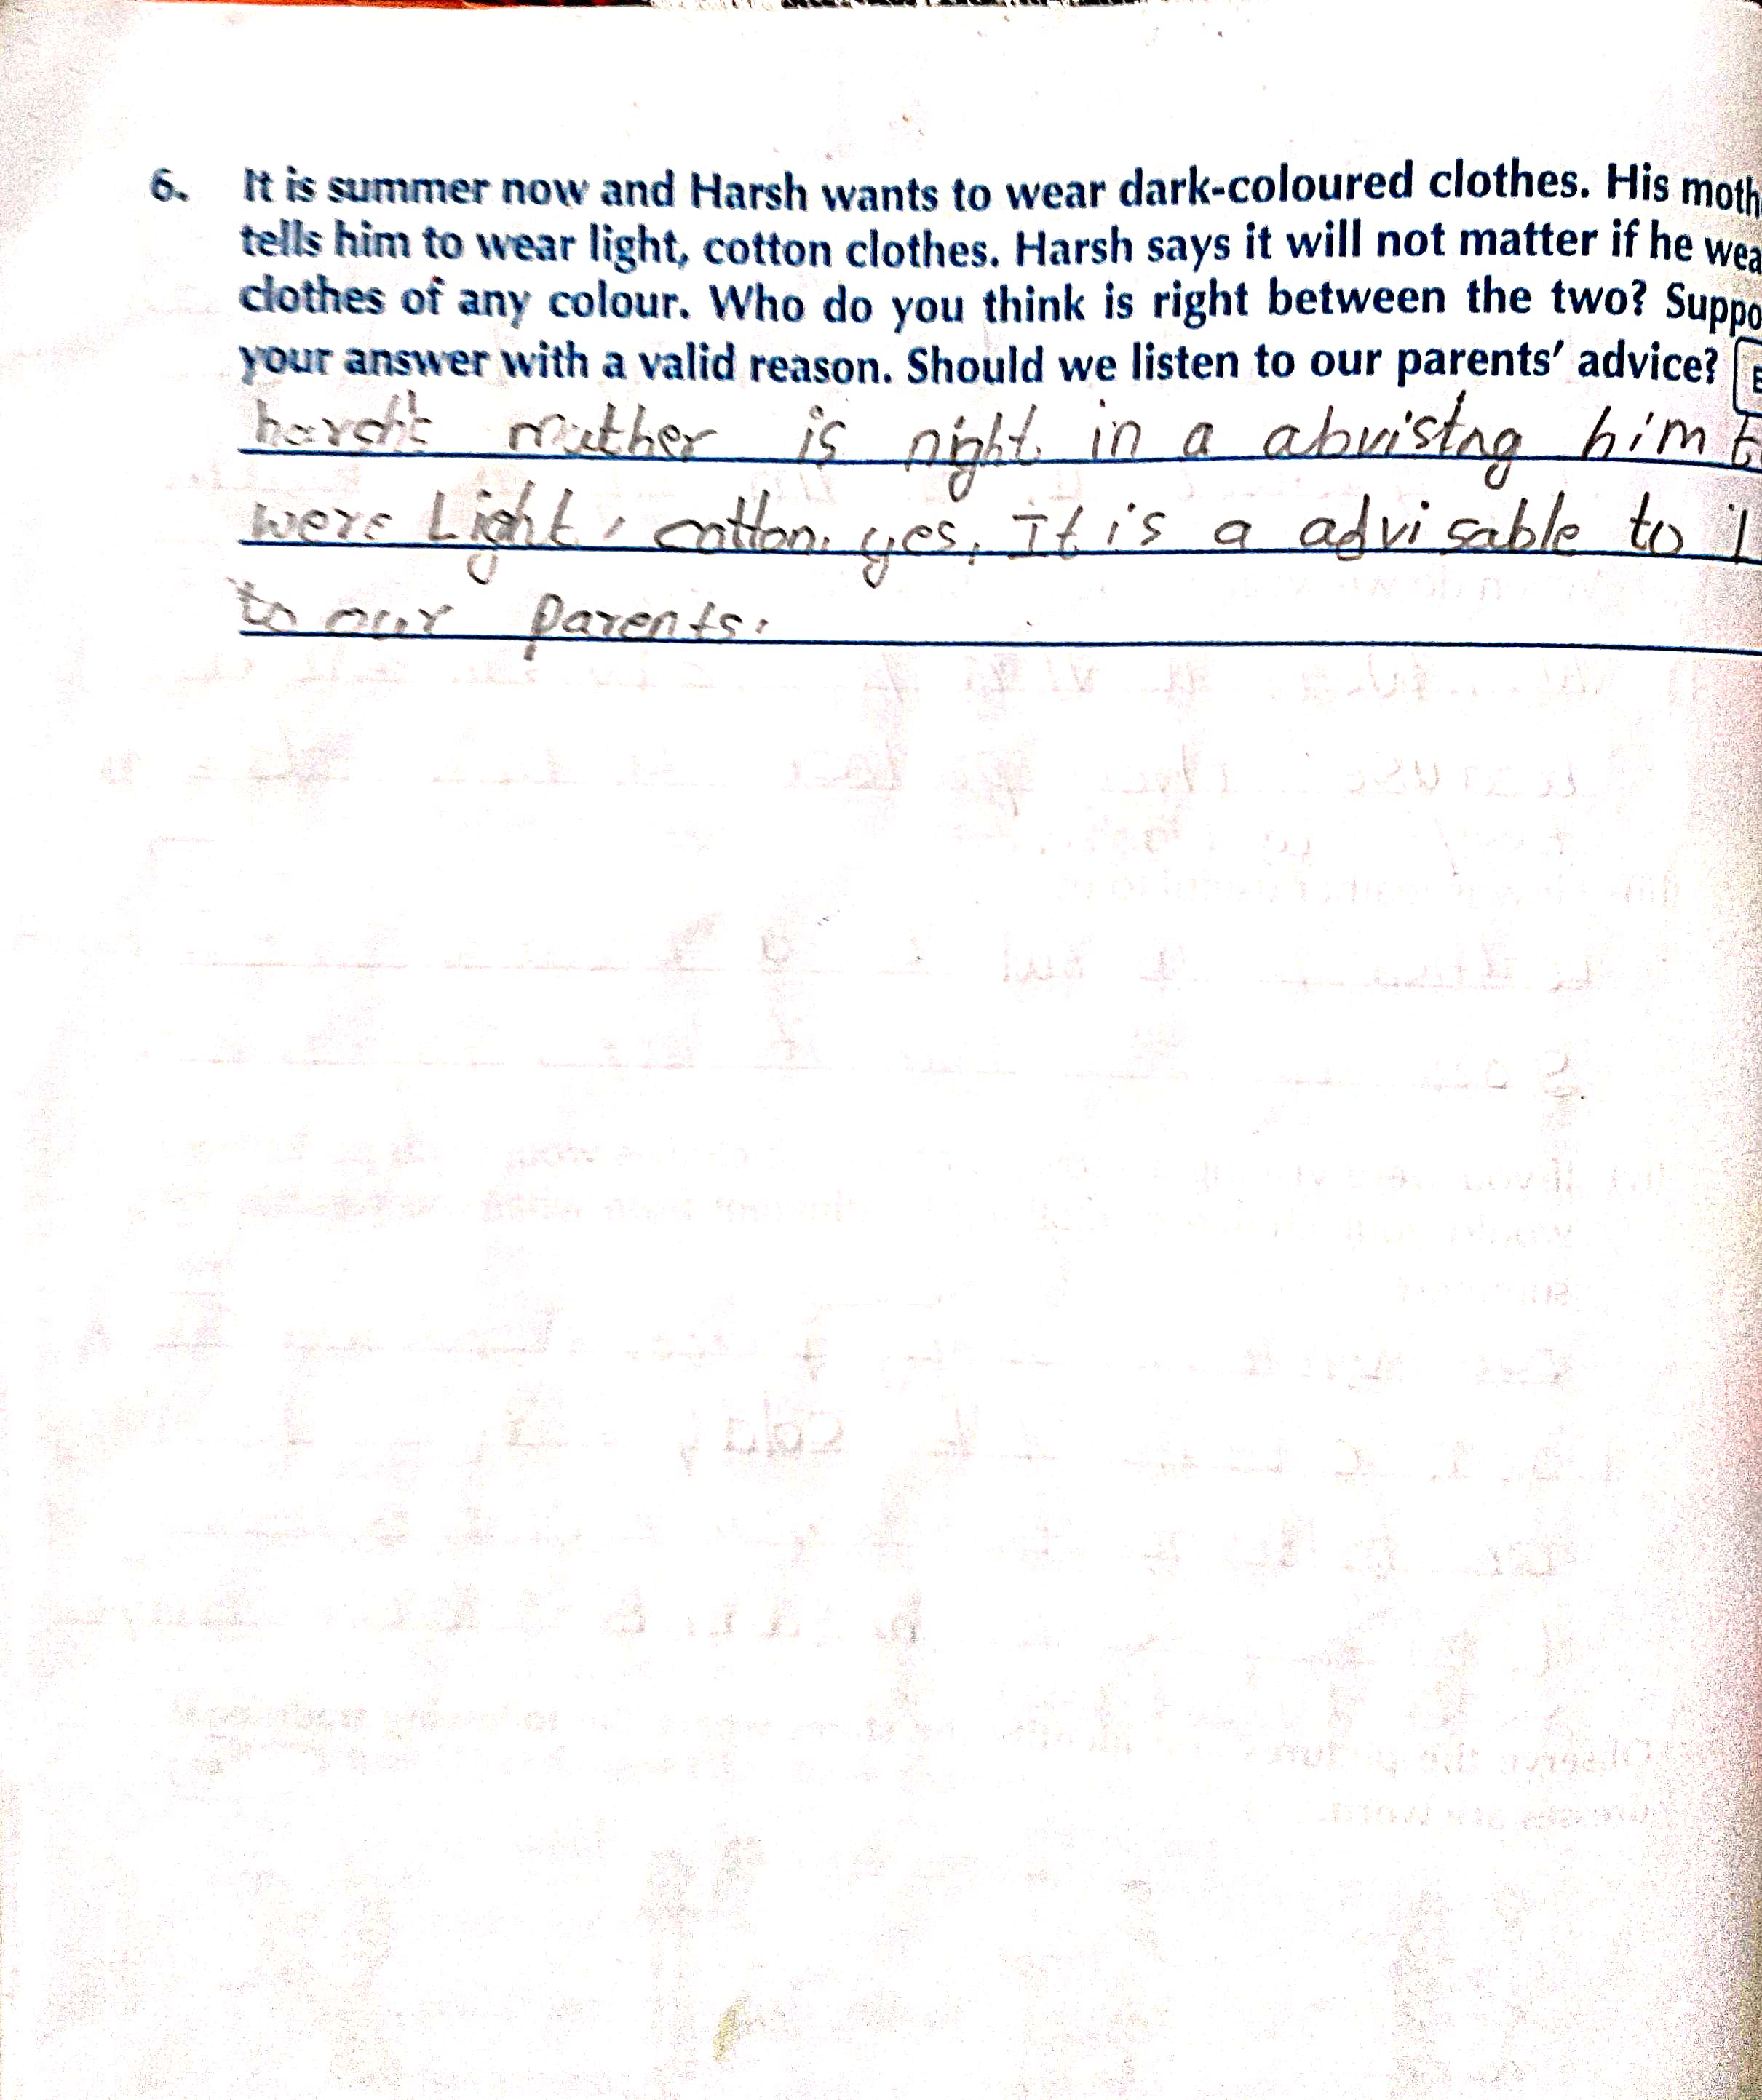 6. It is summer now and Harsh wants to wear dark-coloured clothes. His moth
tells him to wear light, cotton clothes. Harsh says it will not matter if he wea
clothes of any colour. Who do you think is right between the two? Suppo
your answer with a valid reason. Should we listen to our parents' advice?
mather is right in a him
were Light, cotton. yes, It is a advisable to
to our parents.